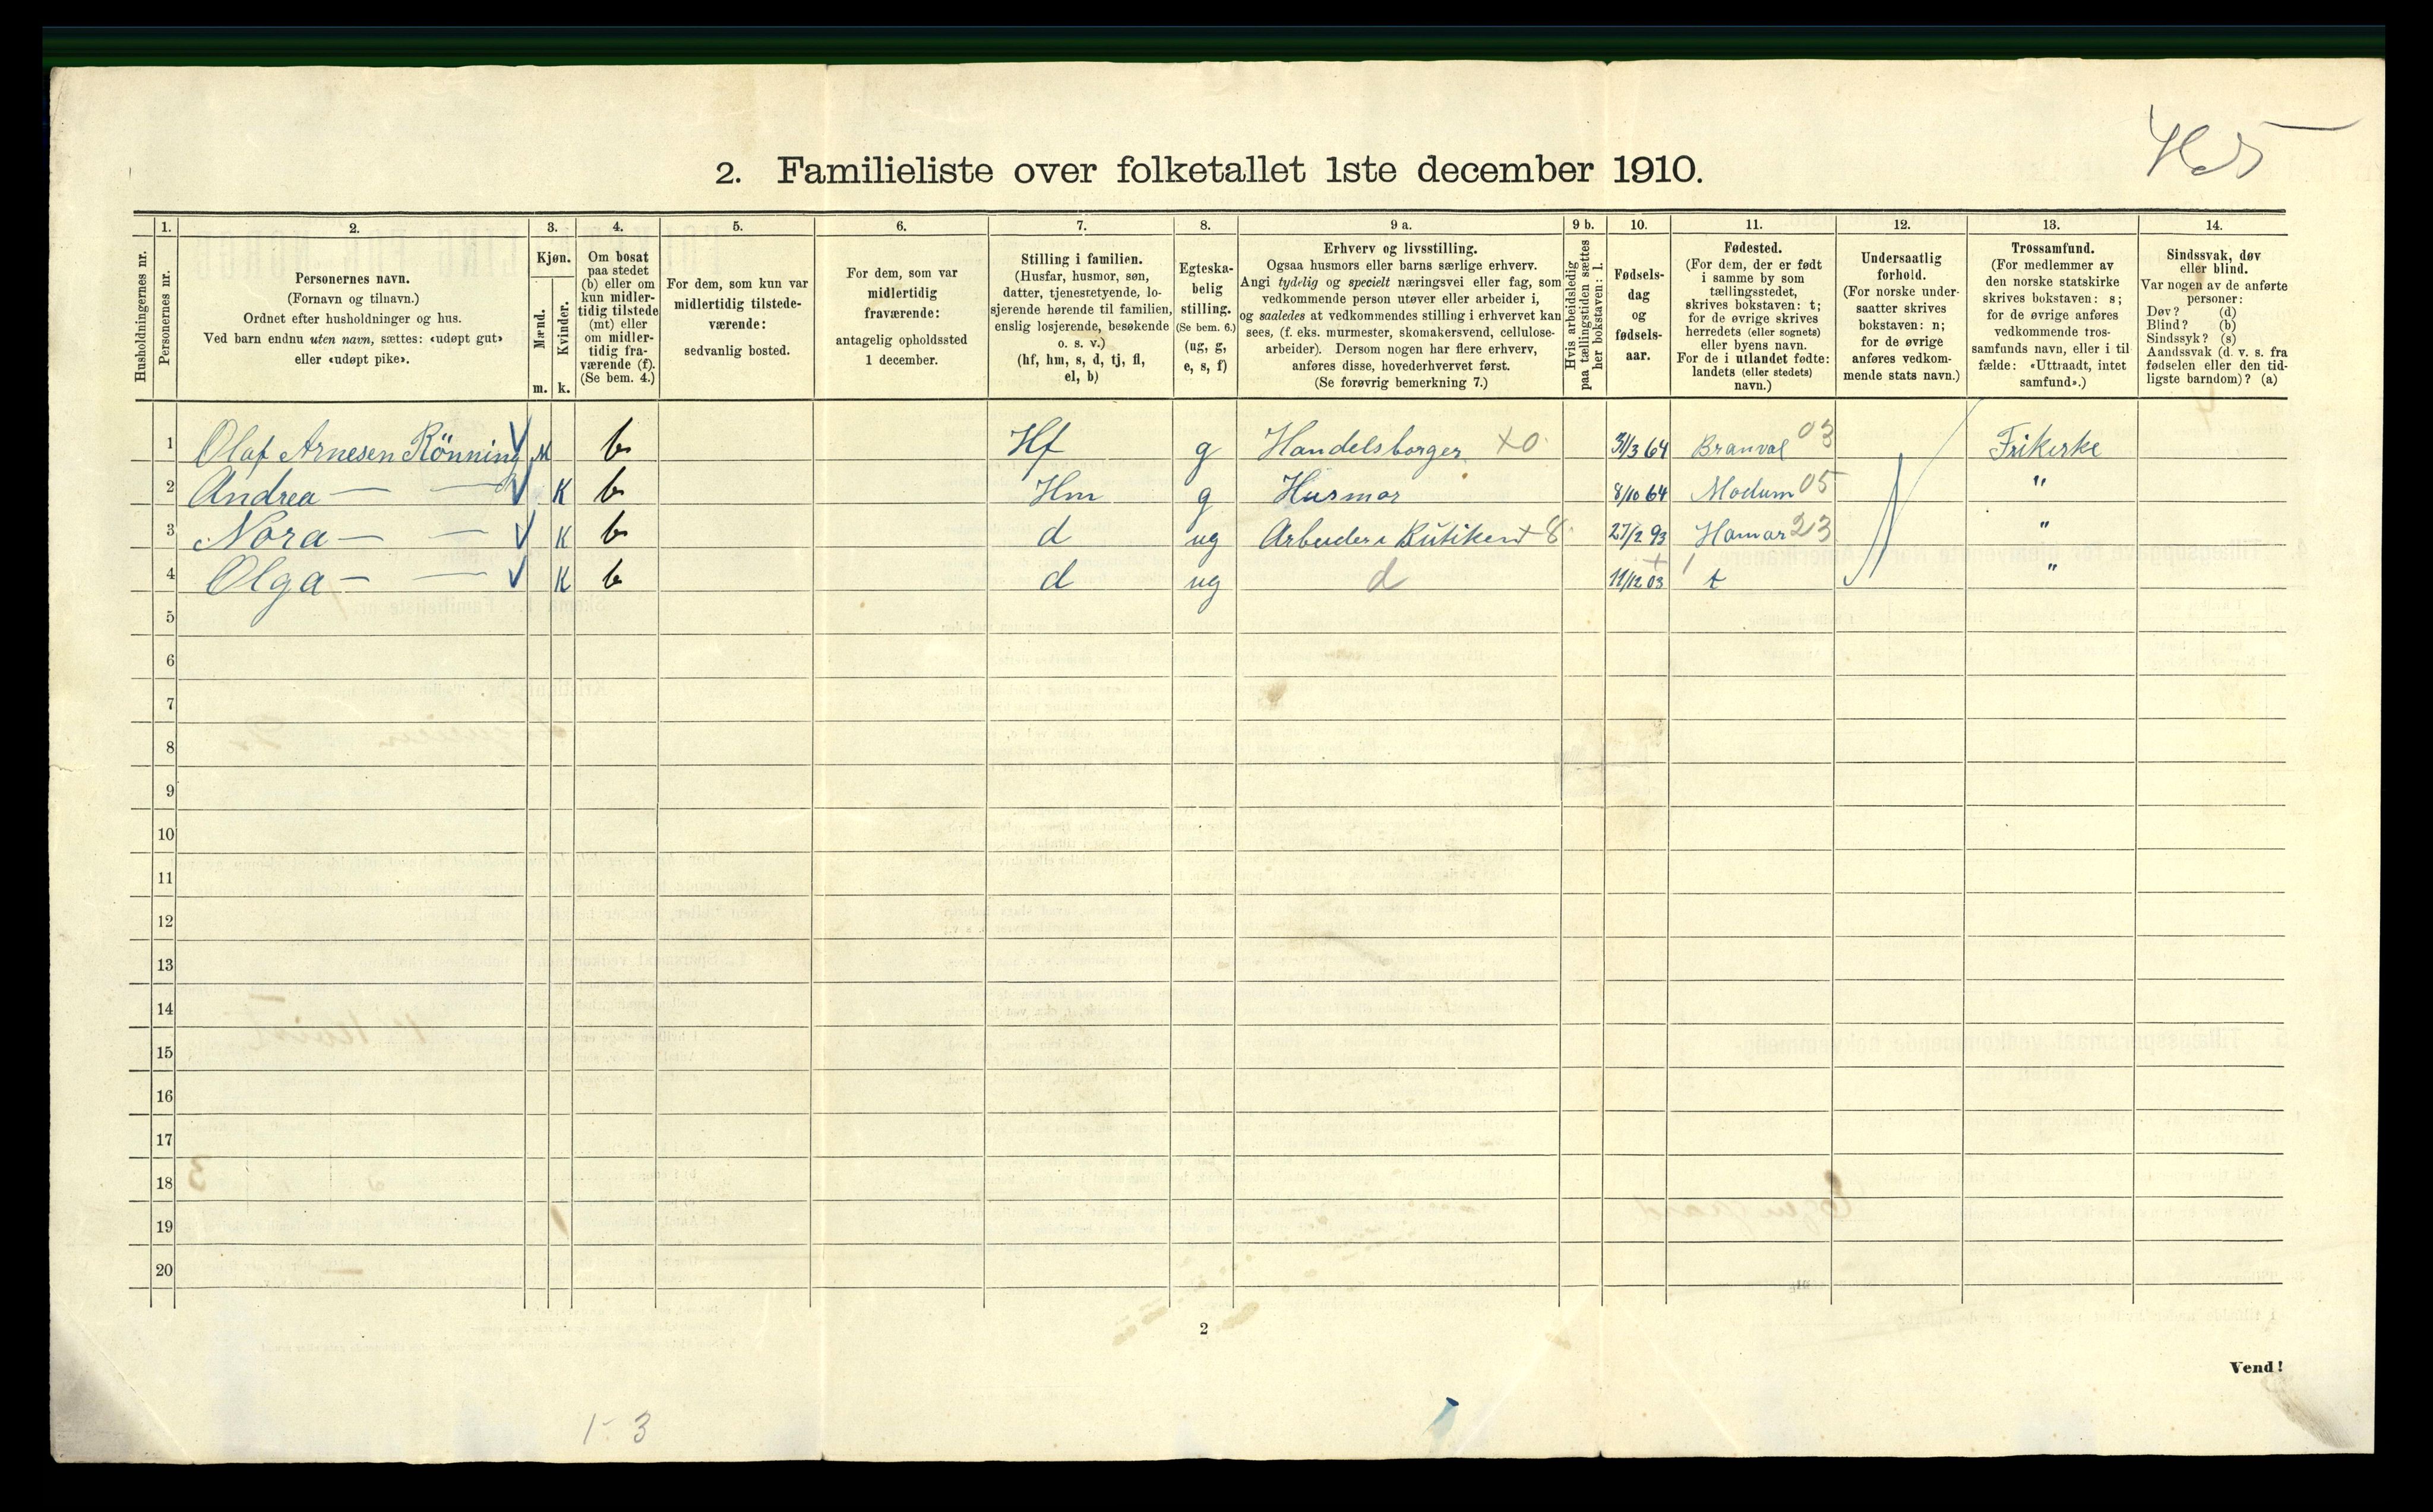 2. Familieliste over folketallet 1ste december 1910.
1. 2. 3. 4. 5. 6. 7. 8. 9 a. 9 b. 10. 11. 12. 13. 14.
Husholdningernes nr.
Personernes nr.
Personernes navn.
(Fornavn og tilnavn.)
Ordnet efter husholdninger og hus.
Ved barn endnu uten navn, sættes: «udøpt gut»
eller «udøpt pike».
Kjøn.
Mænd.
m.
Kvinder.
k.
Om bosat
paa stedet
(b) eller om
kun midler-
tidig tilstede
(mt) eller
om midler-
tidig fra-
værende (f).
(Se bem. 4.)
For dem, som kun var
midlertidig tilstede-
værende:
sedvanlig bosted.
For dem, som var
midlertidig
fraværende:
antagelig opholdssted
1 december.
Stilling i familien.
(Husfar, husmor, søn,
datter, tjenestetyende, lo-
sjerende hørende til familien,
enslig losjerende, besøkende
o. s. v.)
(hf, hm, s, d, tj, fl,
el, b)
Egteska-
belig
stilling.
(Se bem. 6.)
(ug, g,
e, s, f)
Erhverv og livsstilling.
Ogsaa husmors eller barns særlige erhverv.
Angi tydelig og specielt næringsvei eller fag, som
vedkommende person utøver eller arbeider i,
og saaledes at vedkommendes stilling i erhvervet kan
sees, (f. eks. murmester, skomakersvend, cellulose-
arbeider). Dersom nogen har flere erhverv,
anføres disse, hovederhvervet først.
(Se forøvrig bemerkning 7.)
Hvis arbeidsledig
paa tællingstiden sættes
her bokstaven: l.
Fødsels-
dag
og
fødsels-
aar.
Fødested.
(For dem, der er født
i samme by som
tællingsstedet,
skrives bokstaven: t;
for de øvrige skrives
herredets (eller sognets)
eller byens navn.
For de i utlandet fødte:
landets (eller stedets)
navn.)
Undersaatlig
forhold.
(For norske under-
saatter skrives
bokstaven: n;
for de øvrige
anføres vedkom-
mende stats navn.)
Trossamfund.
(For medlemmer av
den norske statskirke
skrives bokstaven: s;
for de øvrige anføres
vedkommende tros-
samfunds navn, eller i til
fælde: «Uttraadt, intet
samfund».)
Sindssvak, døv
eller blind.
Var nogen av de anførte
personer:
Døv? (d)
Blind? (b)
Sindssyk? (s)
Aandssvak (d. v. s. fra
fødselen eller den tid-
ligste barndom)? (a)
1 Olaf Arnesen Rönning M b Hf g Handelsborger +0 31/3 64 Branval 03 Frikirke
2 Andrea — — K b Hm g Husmor 8/10 64 Modum 05 "
3 Nora — — K b d ug Arbeider i Butiken + 8 27/2 93 Hamar 23 "
4 Olga — — K b d ug d 11/12 03 t "
5
6
7
8
9
10
11
12
13
14
15
16
17
18
19
20
2
Vend!
1 - 3